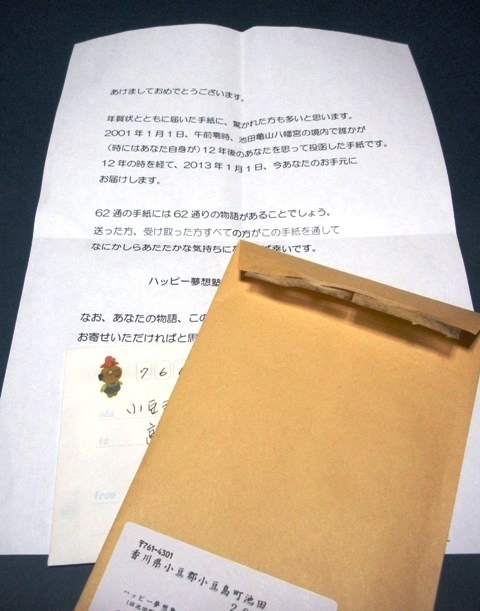 あけましておめでとうございます。
年賀状とともに届いた手紙に、驚かれた方も多いと思います。
2001年1月1日、午前零時、池田亀山八幡宮の境内で誰かが
(時にはあなた自身が)12年後のあなたを思って投函した手紙です。
12年の時を経て、2013年1月1日、今あなたのお手元に
お届けします。
62通の手紙には62通りの物語があることでしょう。
送った方、受け取った方すべての方がこの手紙を通して
なにかしらあたたかな気持ちに
幸いです。
ハッピー夢想塾
なお、あなたの物語、この
お寄せいただければと思
76
add
小豆
to
from
〒761-4301
香川県小豆郡小豆島町池田
ハッピー夢想